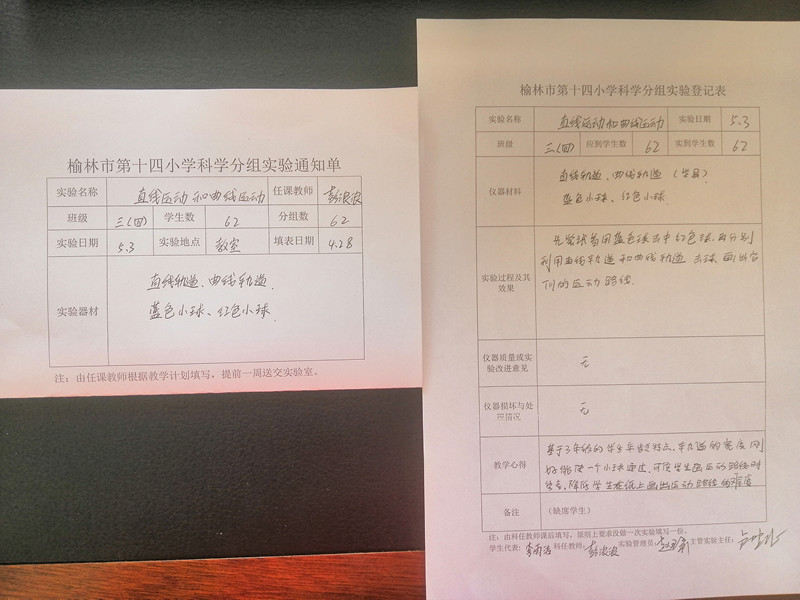 榆林市第十四小学科学分组实验通知单
实验名称 直线运动和曲线运动 任课教师
班级 三(四) 学生数 62 分组数 62
实验日期 5.3 实验地点 教室 填表日期 4.28
实验器材
直线轨道、曲线轨道、
蓝色小球、红色小球、
注：由任课教师根据教学计划填写，提前一周送交实验室。
榆林市第十四小学科学分组实验登记表
实验名称 直线运动和曲线运动 实验日期 5.3
班级 三(四) 应到学生数 62 实到学生数 62
仪器材料
直线轨道、曲线轨道（学具）
蓝色小球、红色小球、
实验过程及其
效果
用蓝色球击中红色球，再分别
利用曲线轨道和曲线轨道击球，画出它
们的运动路线.
仪器质量或实
验改进意见
无
仪器损坏与处
理情况
无
教学心得
基于3年级的学生年龄特点，轨道的宽度刚
好能使一个小球通过，可使学生画运动路线时
参考，降低学生在纸上画出运动路线的难度
备注 （缺席学生）
注：由科任教师课后填写，原则上要求设做一次实验填写一份。
学生代表： 科任教师： 实验管理员： 主管实验主任：